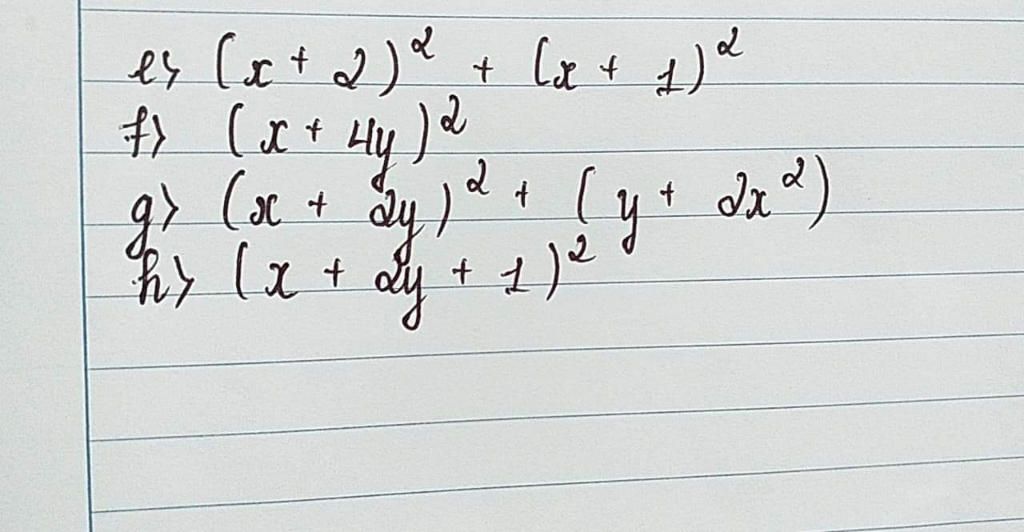 e> (x + 2)² + (x + 1)²
f> (x + 4y)²
g> (x + 2y)² + (y + 2x²)
h> (x + 2y + 1)²